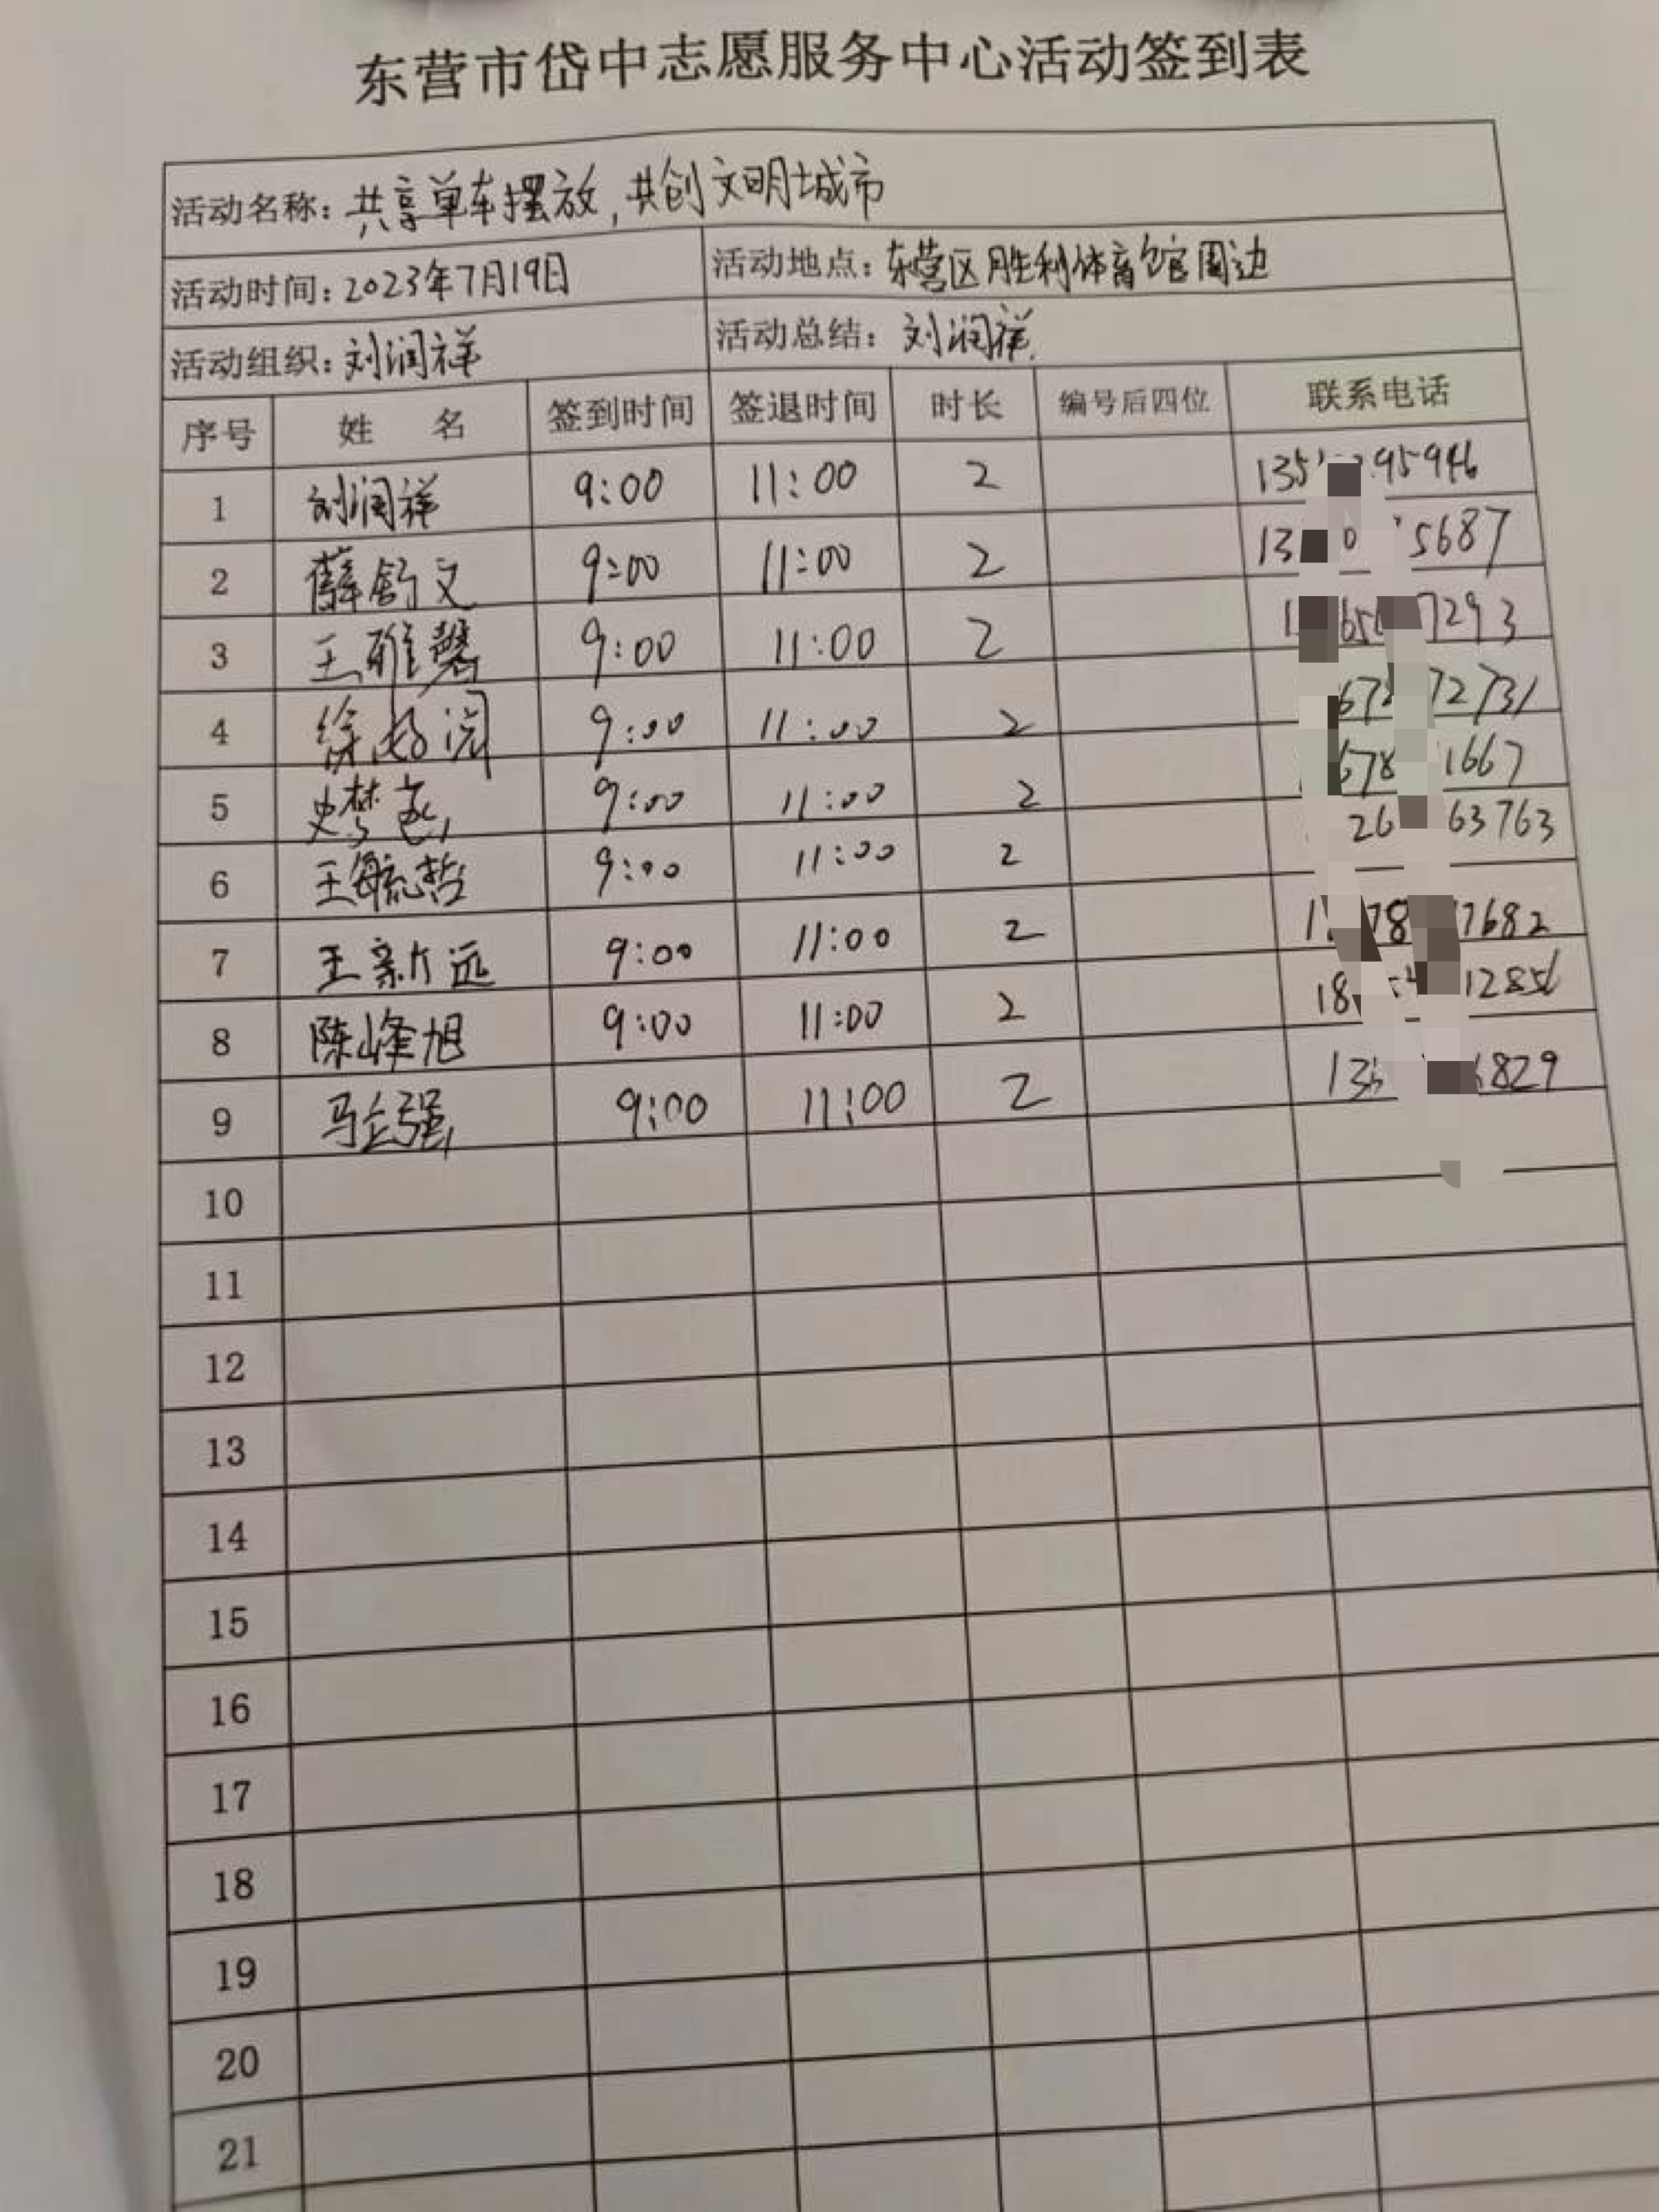 东营市岱中志愿服务中心活动签到表
活动名称：共享单车摆放，共创文明城市
活动时间：2023年7月19日 活动地点：东营区胜利体育馆周边
活动组织：刘润祥 活动总结：刘润祥
序号 姓 名 签到时间 签退时间 时长 编号后四位 联系电话
1 刘润祥 9:00 11:00 2 95946
2 薛舒文 9:00 11:00 2 5687
3 王雅馨 9:00 11:00 2 7293
4 9:00 11:00 2 72731
5 9:00 11:00 2 1667
6 王毓哲 9:00 11:00 2 63763
7 王新远 9:00 11:00 2 7682
8 陈峰旭 9:00 11:00 2 12856
9 9:00 11:00 2 6829
10
11
12
13
14
15
16
17
18
19
20
21